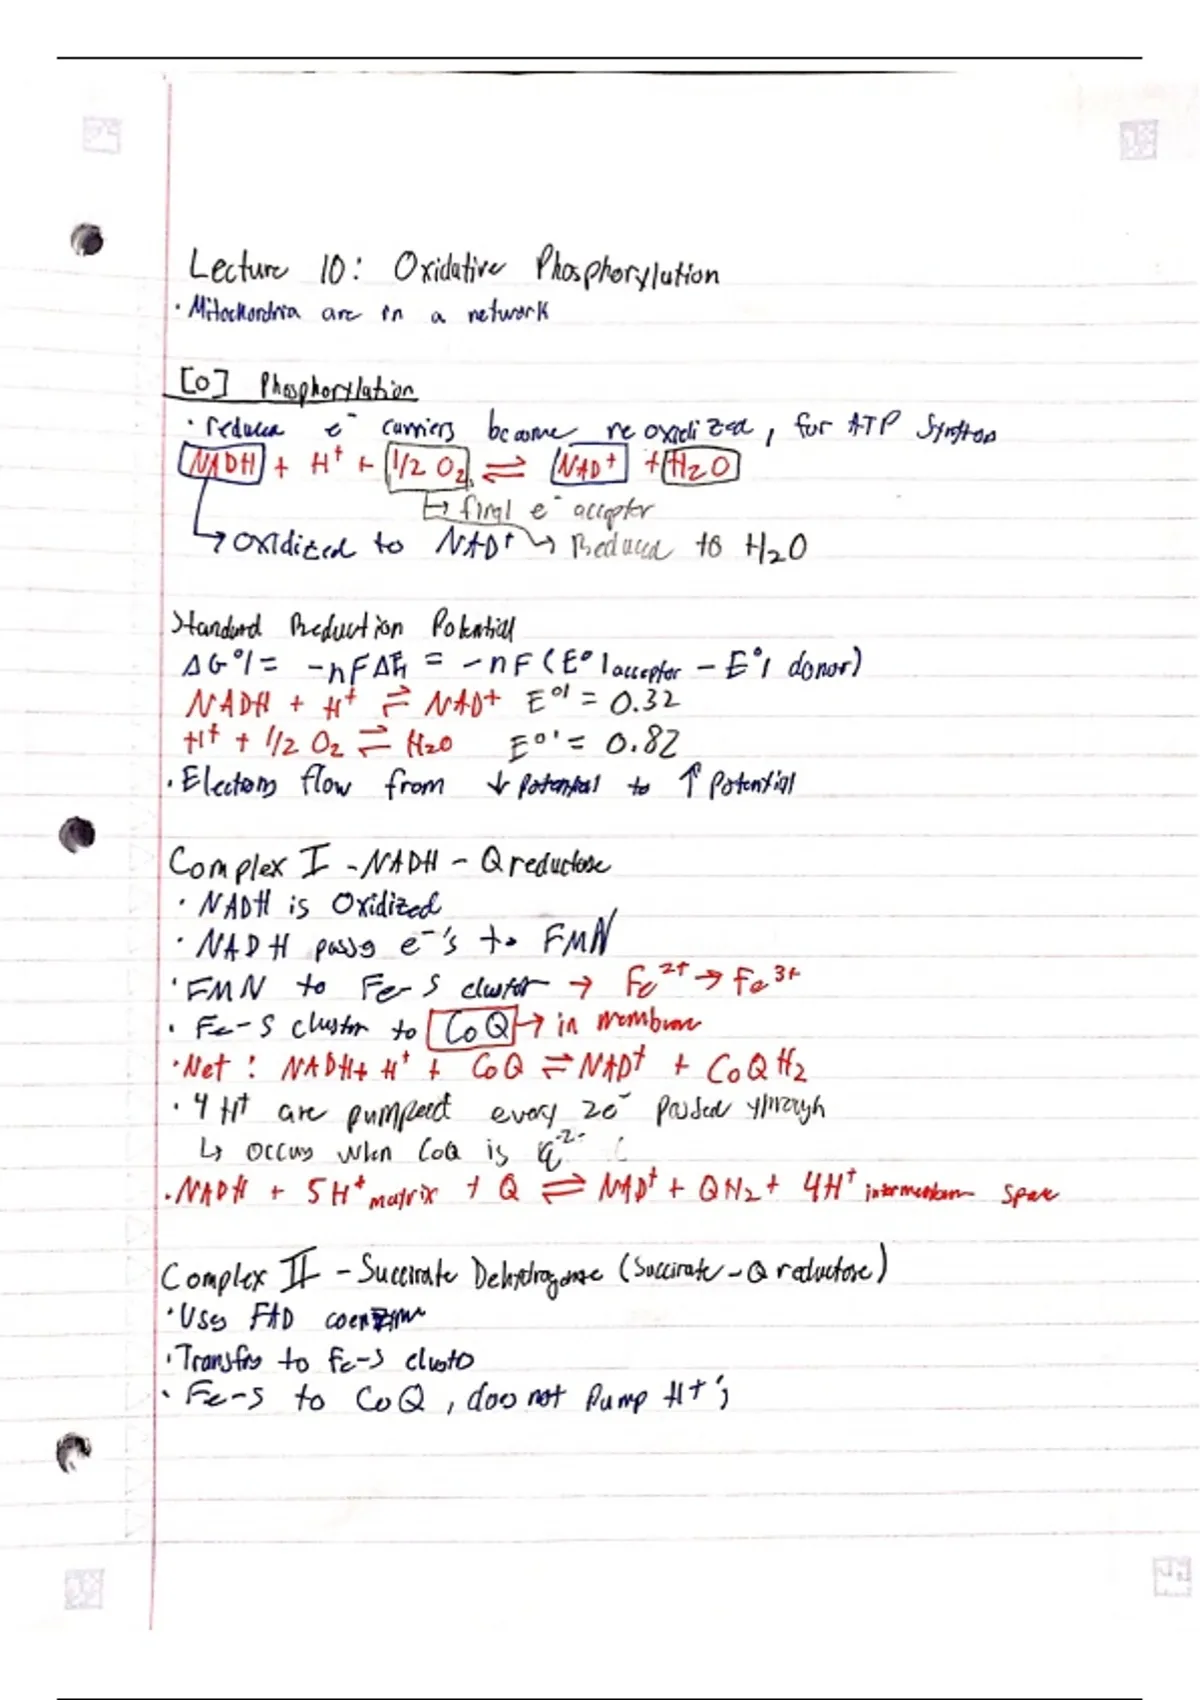 Lecture 10: Oxidative Phosphorylation
· Mitochondria are in a network
[O] Phosphorylation
· reduced e⁻ carriers become reoxidized, for ATP Synthesis
NADH + H⁺ + 1/2 O₂ ⇌ NAD⁺ + H₂O
↳ final e⁻ acceptor
↳ oxidized to NAD⁺ ↳ Reduced to H₂O
Standard Reduction Potential
ΔG°' = -nFΔE = -nF(E°' acceptor - E°' donor)
NADH + H⁺ ⇌ NAD+ E°' = 0.32
H⁺ + 1/2 O₂ ⇌ H₂O E°' = 0.82
· Electrons flow from ↓ potential to ↑ potential
Complex I - NADH - Q reductase
· NADH is Oxidized
· NADH passes e⁻'s to FMN
· FMN to Fe-S cluster → Fe²⁺ → Fe³⁺
· Fe-S cluster to CoQ → in membrane
· Net: NADH + H⁺ + CoQ ⇌ NAD⁺ + CoQH₂
· 4 H⁺ are pumped every 2e⁻ passed through
↳ occurs when CoQ is
· NADH + 5H⁺ matrix + Q ⇌ NAD⁺ + QH₂ + 4H⁺ intermembrane space
Complex II - Succinate Dehydrogenase (Succinate - Q reductase)
· Uses FAD coenzyme
· Transfers to Fe-S cluster
· Fe-S to CoQ, does not pump H⁺;